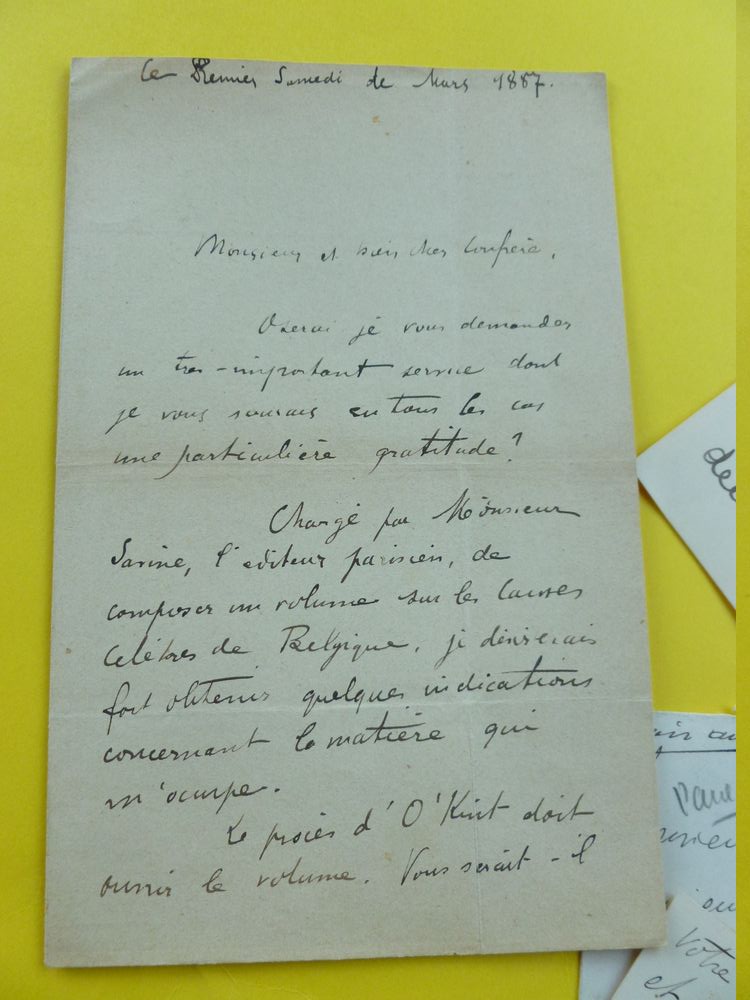 Le Premier Samedi de Mars 1887.
Monsieur et bien cher Confrère,
Oserai je vous demander
un très-important service dont
je vous saurais en tous les cas
une particulière gratitude?
Chargé par Monsieur
Savine, l'éditeur parisien, de
composer un volume sur les Causes
Célèbres de Belgique, je désirerais
fort obtenir quelques indications
concernant la matière qui
m'occupe.
Le procès d'O'Kint doit
ouvrir le volume. Vous serait-il
Votre
et